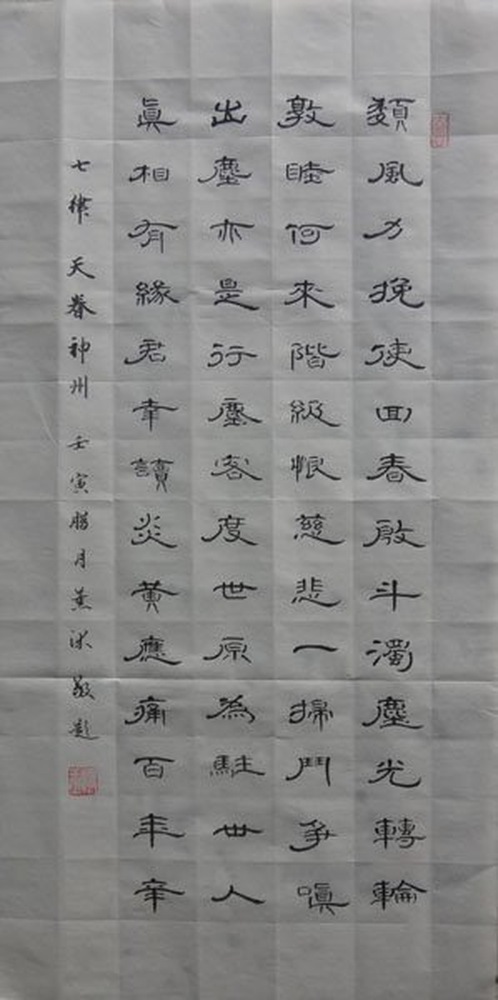 頹風力挽使回春斗濁塵光轉輪
敦睦何來階級恨慈悲一掃鬥爭嗔
出塵亦是行塵客度世原為駐世人
眞相有緣君幸讀炎黃應痛百年辛
七律 天眷神州 壬寅臘月 敬題